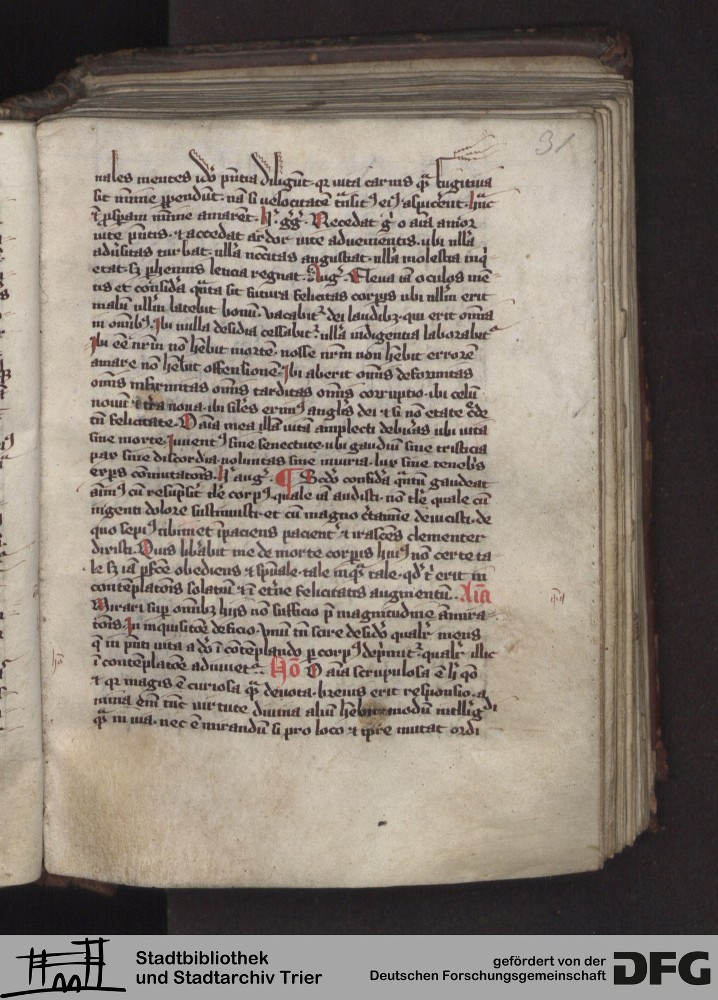 31
nales mentes ido pn̄tia diligūt · qr uita carnis qᷓ fugitiua
sit mīme ꝑpendūt · nā si velocitatē
ꝓspam mīme amarēt · gg̊ · Recedat g̊ o aīa amor
uite pn̄tis · ⁊ accedat ardor uite aduenientis · ubi nulla
adũsitas turbat · nulla nc̄citas angustat · nulla molestia inq̇
etat · sꝫ phennis leticia regnat · Aug᷒ · Eleua iā oculos mē
tis et consid̾a qᷓnta sit futura felicitas corpis ubi nullū erit
malū nullū latebit bonū · vacabit᷑ dei laudibꝫ · qui erit omīa
in omibꝫ · Ibi nulla desidia cessabit᷑ · nulla indigentia laborabit᷑
Ibi eē nr̄m nō hēbit mortē · nosse nr̄m non hēbit errorē
amare nō hēbit offensionē · Ibi aberit omīs deformitas
omīs infirmitas omīs tarditas omīs corruptio · ibi celū
nouū ⁊ tr̄a noua · ibi siles erim᷒ anglis dei ⁊ si nō etate
tn̄ felicitate · O aīa mea illā uitā amplecti debueras ubi uita
sine morte · iuuent᷒ sine senectute · ubi gaudiū sine tristicia
pax sine discordia · voluntas sine iniuria · lux sine tenebris
exps cōmutatōnis · aug᷒ · ¶ Scdo consid̾a qᷓntū gaudeat
aīm᷒ cū resūpsit tlē corp᷒ · quale iā audisti · nō tlē quale cū
ingenti dolore sustinuisti · et cū magno c̾tamīe deuicisti · de
quo sepi᷒ tibimet īpaciens pacient᷑ ⁊ irascēs clementer
dixisti · Quis libabit me de morte corpis hui᷒ nō certe ta
le sꝫ iā pfcē obediens ⁊ spūale · tale inqᷓ tale · qd̾ t̄ erit in
contēplatōnis solatiū ⁊ ī etne felicitatis augmentū · Aīa
Mirari sup omibꝫ hijs nō sufficio p̄ magnitudine āmira
tōnis · In inquisitōe deficio · pmū tn̄ scire desido qualit᷑ mens
q̄ in pn̄ti uita a do ī cōtēplando p corp᷒ depmit᷑ · qualit᷑ illic
ī contēplatōe adiuuet᷑ · Hō O aīa scrupulosa ē h᷒ qō
⁊ qr magis ē curiosa qᷓ deuota · breuis erit responsio · a
nima em̄ tūc uirtute diuina aliū hēbit modū intelligēdi
qᷓ in uia · nec ē mirandū si pro loco ⁊ tpre mutat ordi
Stadtbibliothek
und Stadtarchiv Trier
gefördert von der
Deutschen Forschungsgemeinschaft
DFG